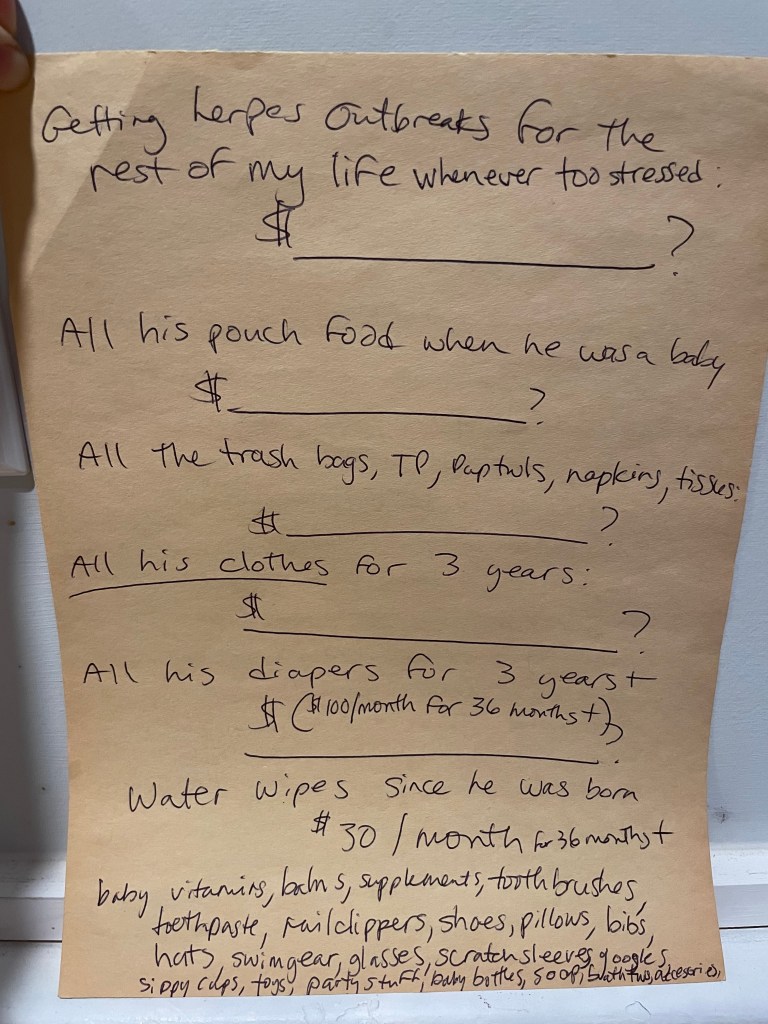 Getting herpes outbreaks for the
rest of my life whenever too stressed:
$ ?
All his pouch food when he was a baby
$ ?
All the trash bags, TP, Paptwls, napkins, tissues:
$ ?
All his clothes for 3 years:
$ ?
All his diapers for 3 years+
$ ($100/month for 36 months+)
?
Water wipes since he was born
$30/month for 36 months+
baby vitamins, balms, supplements, toothbrushes,
toothpaste, nailclippers, shoes, pillows, bibs,
hats, swimgear, glasses, scratch sleeves, googles,
sippy cups, toys, party stuff, baby bottles, soap,